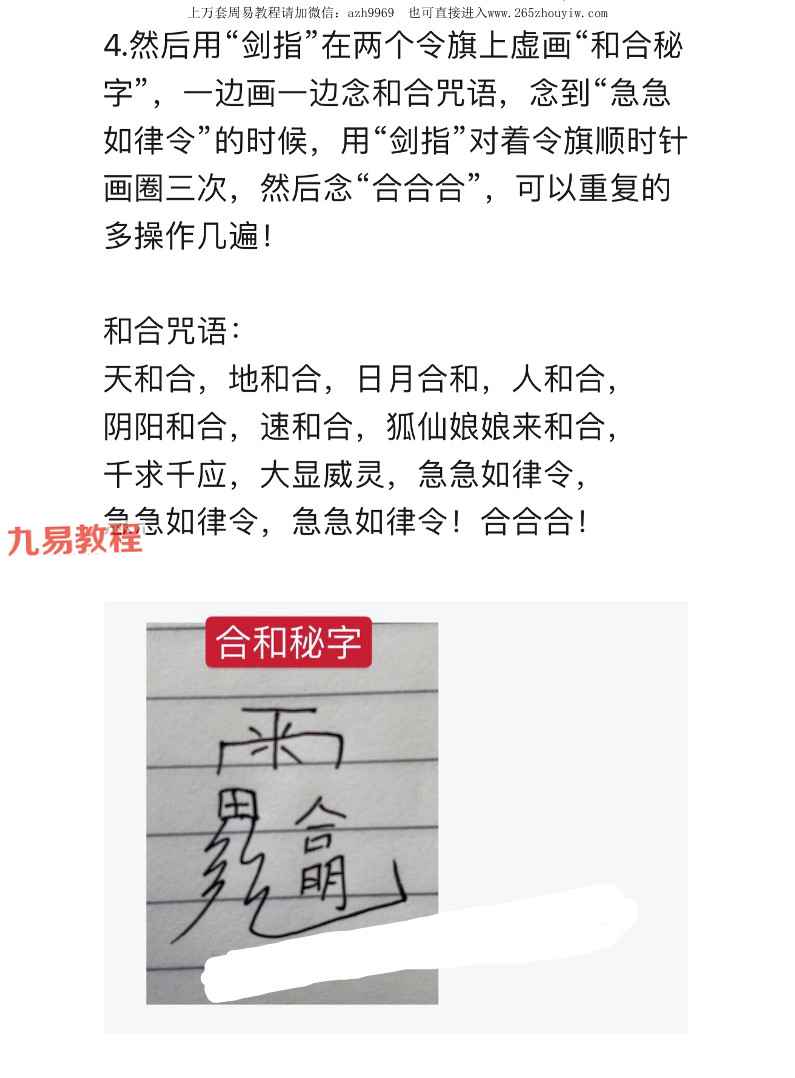 上万套周易教程请加微信：azh9969　也可直接进入www.265zhouyiw.com
4.然后用“剑指”在两个令旗上虚画“和合秘
字”，一边画一边念和合咒语，念到“急急
如律令”的时候，用“剑指”对着令旗顺时针
画圈三次，然后念“合合合”，可以重复的
多操作几遍！
和合咒语：
天和合，地和合，日月合和，人和合，
阴阳和合，速和合，狐仙娘娘来和合，
千求千应，大显威灵，急急如律令，
急急如律令，急急如律令！合合合！
九易教程
合和秘字